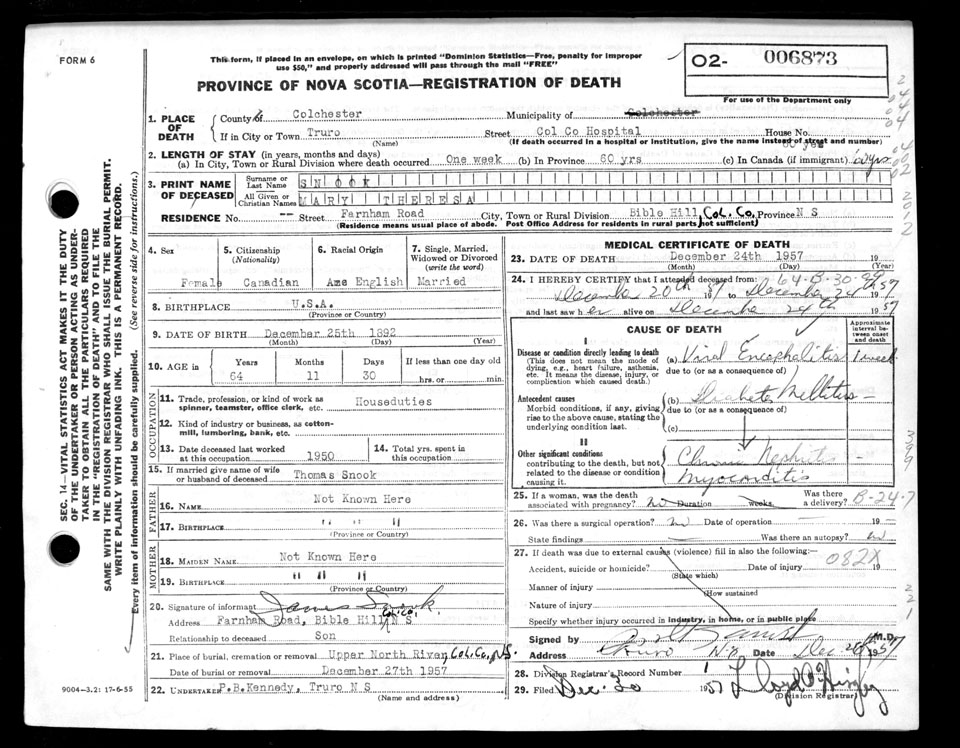 FORM 6
This form, if placed in an envelope, on which is printed "Dominion Statistics—Free, penalty for improper
use $50," and properly addressed will pass through the mail "FREE"
02- 006873
For use of the Department only
PROVINCE OF NOVA SCOTIA—REGISTRATION OF DEATH
1. PLACE OF DEATH
County of Colchester Municipality of Colchester
If in City or Town Truro Street Col Co Hospital House No.
(Name) (If death occurred in a hospital or institution, give the name instead of street and number)
2. LENGTH OF STAY (in years, months and days)
(a) In City, Town or Rural Division where death occurred One week (b) In Province 60 yrs (c) In Canada (if immigrant) 60 yrs
3. PRINT NAME OF DECEASED
Surname or Last Name SNOOK
All Given or Christian Names MARY THERESA
RESIDENCE No. -- Street Farnham Road City, Town or Rural Division Bible Hill, Col. Co. Province N S
(Residence means usual place of abode. Post Office Address for residents in rural parts not sufficient)
4. Sex Female
5. Citizenship (Nationality) Canadian
6. Racial Origin Ame English
7. Single, Married, Widowed or Divorced (write the word) Married
8. BIRTHPLACE U.S.A.
(Province or Country)
9. DATE OF BIRTH December 25th 1892
(Month) (Day) (Year)
10. AGE in Years 64 Months 11 Days 30 If less than one day old hrs. or min.
OCCUPATION
11. Trade, profession, or kind of work as spinner, teamster, office clerk, etc. Houseduties
12. Kind of industry or business, as cotton-mill, lumbering, bank, etc.
13. Date deceased last worked at this occupation 1950
14. Total yrs. spent in this occupation
15. If married give name of wife or husband of deceased Thomas Snook
FATHER
16. NAME Not Known Here
17. BIRTHPLACE " " "
(Province or Country)
MOTHER
18. MAIDEN NAME Not Known Here
19. BIRTHPLACE " " "
(Province or Country)
20. Signature of informant James Snook
Address Farnham Road, Bible Hill Col. Co. N S
Relationship to deceased Son
21. Place of burial, cremation or removal Upper North River, Col. Co., N.S.
Date of burial or removal December 27th 1957
22. UNDERTAKER P.B. Kennedy, Truro N S
(Name and address)
9004—3.2: 17-6-55
MEDICAL CERTIFICATE OF DEATH
23. DATE OF DEATH December 24th 1957 19
(Month) (Day) (Year)
24. I HEREBY CERTIFY that I attended deceased from: 64-B-30-99
December 20th 1957 to December 24 1957
and last saw her alive on December 24th 1957
CAUSE OF DEATH
Approximate interval between onset and death
I
Disease or condition directly leading to death
(This does not mean the mode of dying, e.g., heart failure, asthenia, etc. It means the disease, injury, or complication which caused death.)
(a) Viral Encephalitis 1 week
due to (or as a consequence of)
Antecedent causes
Morbid conditions, if any, giving rise to the above cause, stating the underlying condition last.
(b) Diabetes Mellitus —
due to (or as a consequence of)
(c)
II
Other significant conditions
contributing to the death, but not related to the disease or condition causing it.
Chronic Nephritis
Myocarditis
25. If a woman, was the death associated with pregnancy? no Duration weeks. Was there a delivery? B-24-7
26. Was there a surgical operation? no Date of operation — 19 —
State findings — Was there an autopsy? no
27. If death was due to external causes (violence) fill in also the following:—
Accident, suicide or homicide? Date of injury 082X 19
(State which)
Manner of injury
(How sustained
Nature of injury
Specify whether injury occurred in industry, in home, or in public place
Signed by M.D.
Address Truro N.S. Date Dec 26 1957
28. Division Registrar's Record Number
29. Filed Dec. 30 1957 Lloyd
(Division Registrar)
SEC. 14—VITAL STATISTICS ACT MAKES IT THE DUTY
OF THE UNDERTAKER OR PERSON ACTING AS UNDER-
TAKER TO OBTAIN ALL THE PARTICULARS REQUIRED
IN THE "REGISTRATION OF DEATH" AND TO FILE THE
SAME WITH THE DIVISION REGISTRAR WHO SHALL ISSUE THE BURIAL PERMIT.
WRITE PLAINLY WITH UNFADING INK. THIS IS A PERMANENT RECORD.
Every item of information should be carefully supplied. (See reverse side for instructions.)